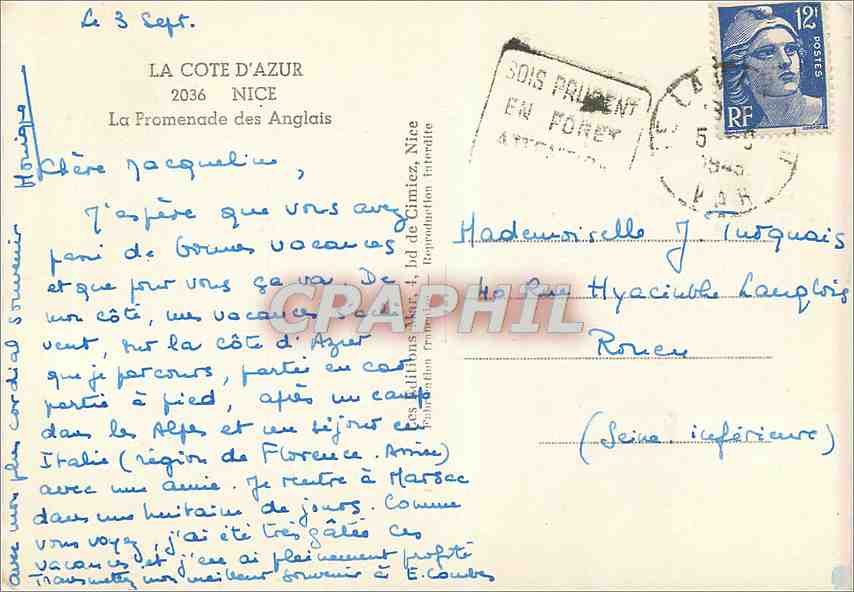 Le 3 Sept.
LA COTE D'AZUR
2036 NICE
La Promenade des Anglais
Chère Jacqueline,
J'espère que vous avez
de bonnes vacances
et que pour vous ça va De
mon côté, mes vacances
vent, sur la côte d'Azur
que je parcours, partie en car
partie à pied, après un camp
dans les Alpes et un séjour en
Italie (région de Florence.
avec une amie. Je rentre à Marsac
dans une huitaine de jours. Comme
vous voyez, j'ai été très gâtée ces
vacances et j'en ai pleinement profité
Transmettez mon meilleur souvenir à E. Combes
avec mon plus cordial souvenir
Monique
Les Editions Mar, 4, bd de Cimiez, Nice
Fabrication française - Reproduction interdite
SOIS PRUDENT
EN FORET
12F
POSTES
RF
VAR
Mademoiselle J. Turquais
40 Rue Hyacinthe Langlois
Rouen
(Seine inférieure)
CPAPHIL